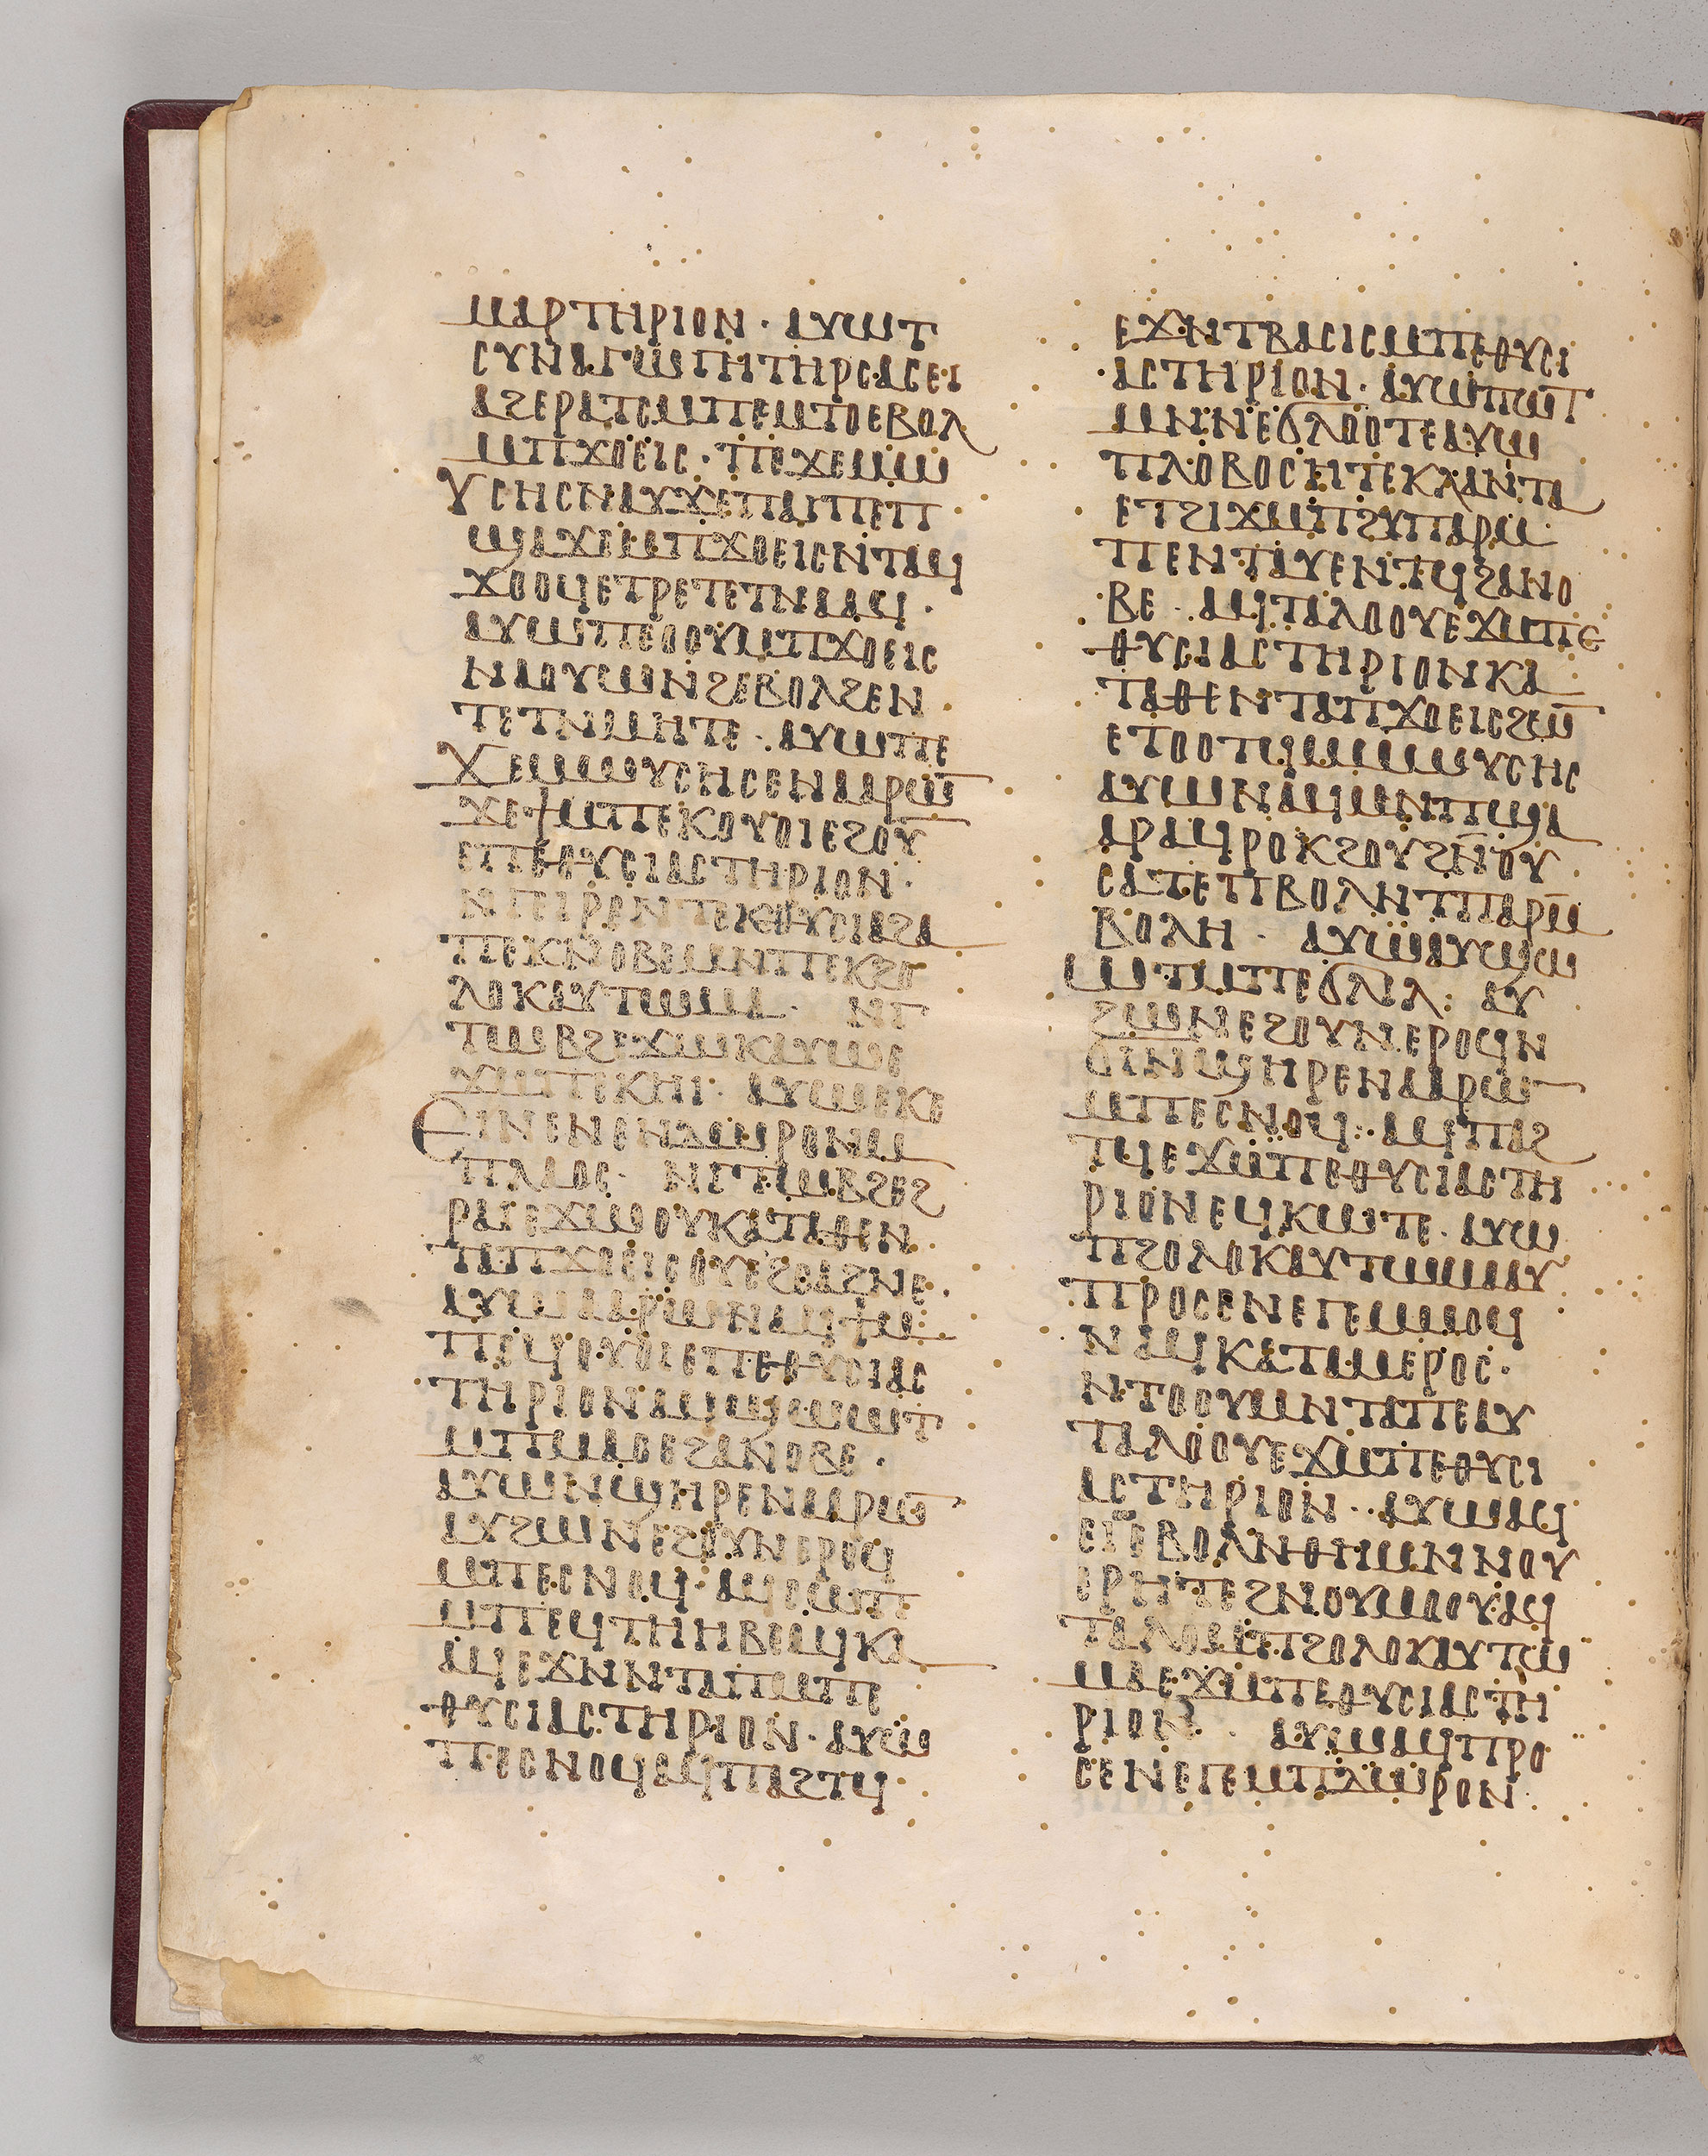 ⲙⲁⲣⲧⲏⲣⲓⲟⲛ · ⲁⲩⲱⲧ
ⲥⲩⲛⲁⲅⲱⲅⲏⲧⲏⲣⲥⲁⲥⲉⲓ
ⲁϩⲉⲣⲁⲧⲥⲙⲡⲉⲙⲧⲟⲉⲃⲟⲗ
ⲙⲡϫⲟⲉⲓⲥ · ⲡⲉϫⲉⲙⲱ
ⲩⲥⲏⲥⲛⲁⲩϫⲉⲡⲁⲓⲡⲉⲡ
ϣⲁϫⲉⲙⲡϫⲟⲉⲓⲥⲛⲧⲁϥ
ϫⲟⲟϥⲉⲧⲣⲉⲧⲉⲧⲛⲁⲁϥ ·
ⲁⲩⲱⲡⲉⲟⲟⲩⲙⲡϫⲟⲉⲓⲥ
ⲛⲁⲟⲩⲱⲛϩⲉⲃⲟⲗϩⲉⲛ
ⲧⲉⲧⲛⲙⲏⲧⲉ · ⲁⲩⲱⲡⲉ
ϫⲉⲙⲱⲩⲥⲏⲥⲉⲛⲁⲁⲣⲱ̄
ϫⲉϯⲙⲡⲉⲕⲟⲩⲟⲓⲉϩⲟⲩ
ⲉⲡⲉⲑⲩⲥⲓⲁⲥⲧⲏⲣⲓⲟⲛ ·
ⲛⲅⲉⲓⲣⲉⲛⲧⲉⲕⲑⲩⲥⲓⲁϩⲁ
ⲡⲉⲕⲛⲟⲃⲉⲙⲛⲡⲉⲕϩⲟ
ⲗⲟⲕⲁⲩⲧⲱⲙⲁ · ⲛⲅ
ⲧⲱⲃϩⲉϫⲱⲕⲁⲩⲱⲉ
ϫⲙⲡⲉⲕⲏⲓ · ⲁⲩⲱⲉⲕⲉ
ⲉⲓⲛⲉⲛⲉⲛⲇⲱⲣⲟⲛⲙ
ⲡⲗⲁⲟⲥ · ⲛⲅⲧⲱⲃϩⲉϩ
ⲣⲁⲓⲉϫⲱⲟⲩⲕⲁⲧⲁⲑⲉⲛ
ⲧⲁⲡϫⲟⲉⲓⲥⲟⲩⲉϩⲥⲁϩⲛⲉ ·
ⲁⲩⲱⲁⲁⲣⲱⲛⲁϥϯⲙ
ⲡⲉϥⲟⲩⲟⲓⲉⲡⲉⲑⲩⲥⲓⲁⲥ
ⲧⲏⲣⲓⲟⲛⲁϥϣⲱⲱⲧ
ⲙⲡⲙⲁⲥⲉϩⲁⲛⲟⲃⲉ ·
ⲁⲩⲱⲛϣⲏⲣⲉⲛⲁⲁⲣⲱ̄
ⲁⲩϩⲱⲛⲉϩⲟⲩⲛⲉⲣⲟϥ
ⲙⲡⲉⲥⲛⲟϥ · ⲁϥⲥⲱⲡ
ⲙⲡⲉϥⲧⲏⲏⲃⲉⲁϥⲕⲁ
ⲁϥⲉϫⲛⲛⲧⲁⲡⲙⲡⲉ
ⲑⲩⲥⲓⲁⲥⲧⲏⲣⲓⲟⲛ · ⲁⲩⲱ
ⲡⲉⲥⲛⲟϥⲁϥⲡⲁϩⲧϥ
ⲉϫⲛⲧⲃⲁⲥⲓⲥⲙⲡⲉⲑⲩⲥⲓ
ⲁⲥⲧⲏⲣⲓⲟⲛ · ⲁⲩⲱⲡⲱⲧ
ⲙⲛⲛⲉϭⲗⲟⲟⲧⲉⲁⲩⲱ
ⲡⲗⲟⲃⲟⲥⲏⲧⲉⲕⲗⲁⲛⲧⲁ
ⲉⲧϩⲓϫⲙⲡϩⲩⲡⲁⲣⲙ̄
ⲡⲉⲛⲧⲁⲩⲉⲛⲧϥϩⲁⲛⲟ
ⲃⲉ · ⲁϥⲧⲁⲗⲟⲟⲩⲉϫⲙⲡⲉ
ⲑⲩⲥⲓⲁⲥⲧⲏⲣⲓⲟⲛⲕⲁ
ⲧⲁⲑⲉⲛⲧⲁⲡϫⲟⲉⲓⲥϩⲱ̄
ⲉⲧⲟⲟⲧϥⲙⲙⲱⲩⲥⲏⲥ
ⲁⲩⲱⲛⲁϥⲙⲉⲛⲡϣⲁ
ⲁⲣⲁϥⲣⲟⲕϩⲟⲩϩⲛ̄ⲟⲩ
ⲥⲁⲧⲉⲡⲃⲟⲗⲛⲧⲡⲁⲣⲙ̄
ⲃⲟⲗⲏ · ⲁⲩⲱⲁⲩϣⲱ
ⲱⲧⲙⲡⲉϭⲗⲓⲗ : ⲁⲩ
ϩⲱⲛⲉϩⲟⲩⲛⲉⲣⲟϥⲛ
ϭⲓⲛϣⲏⲣⲉⲛⲁⲁⲣⲱ̄
ⲙⲡⲉⲥⲛⲟϥ · ⲁϥⲡⲁϩ
ⲧϥⲉϫⲙⲡⲉⲑⲩⲥⲓⲁⲥⲧⲏ
ⲣⲓⲟⲛⲉϥⲕⲱⲧⲉ · ⲁⲩⲱ
ⲡϩⲟⲗⲟⲕⲁⲩⲧⲱⲙⲁⲁⲩ
ⲡⲣⲟⲥⲉⲛⲉⲅⲉⲙⲙⲟϥ
ⲛⲁϥⲕⲁⲧⲁⲙⲉⲣⲟⲥ ·
ⲛⲧⲟⲟⲩⲙⲛⲧⲁⲡⲉⲁⲩ
ⲧⲁⲗⲟⲟⲩⲉϫⲙⲡⲉⲑⲩⲥⲓ
ⲁⲥⲧⲏⲣⲓⲟⲛ · ⲁⲩⲱⲁϥ
ⲉⲓⲉⲃⲟⲗⲛⲑⲏⲙⲛⲛⲟⲩ
ⲉⲣⲏⲧⲉϩⲛⲟⲩⲙⲟⲟⲩⲁϥ
ⲧⲁⲗⲟⲙⲡϩⲟⲗⲟⲕⲁⲩⲧⲱ
ⲙⲁⲉϫⲙⲡⲉⲑⲩⲥⲓⲁⲥⲧⲏ
ⲣⲓⲟⲛ · ⲁⲩⲱⲁϥⲡⲣⲟ
ⲥⲉⲛⲉⲅⲉⲙⲡⲇⲱⲣⲟⲛ